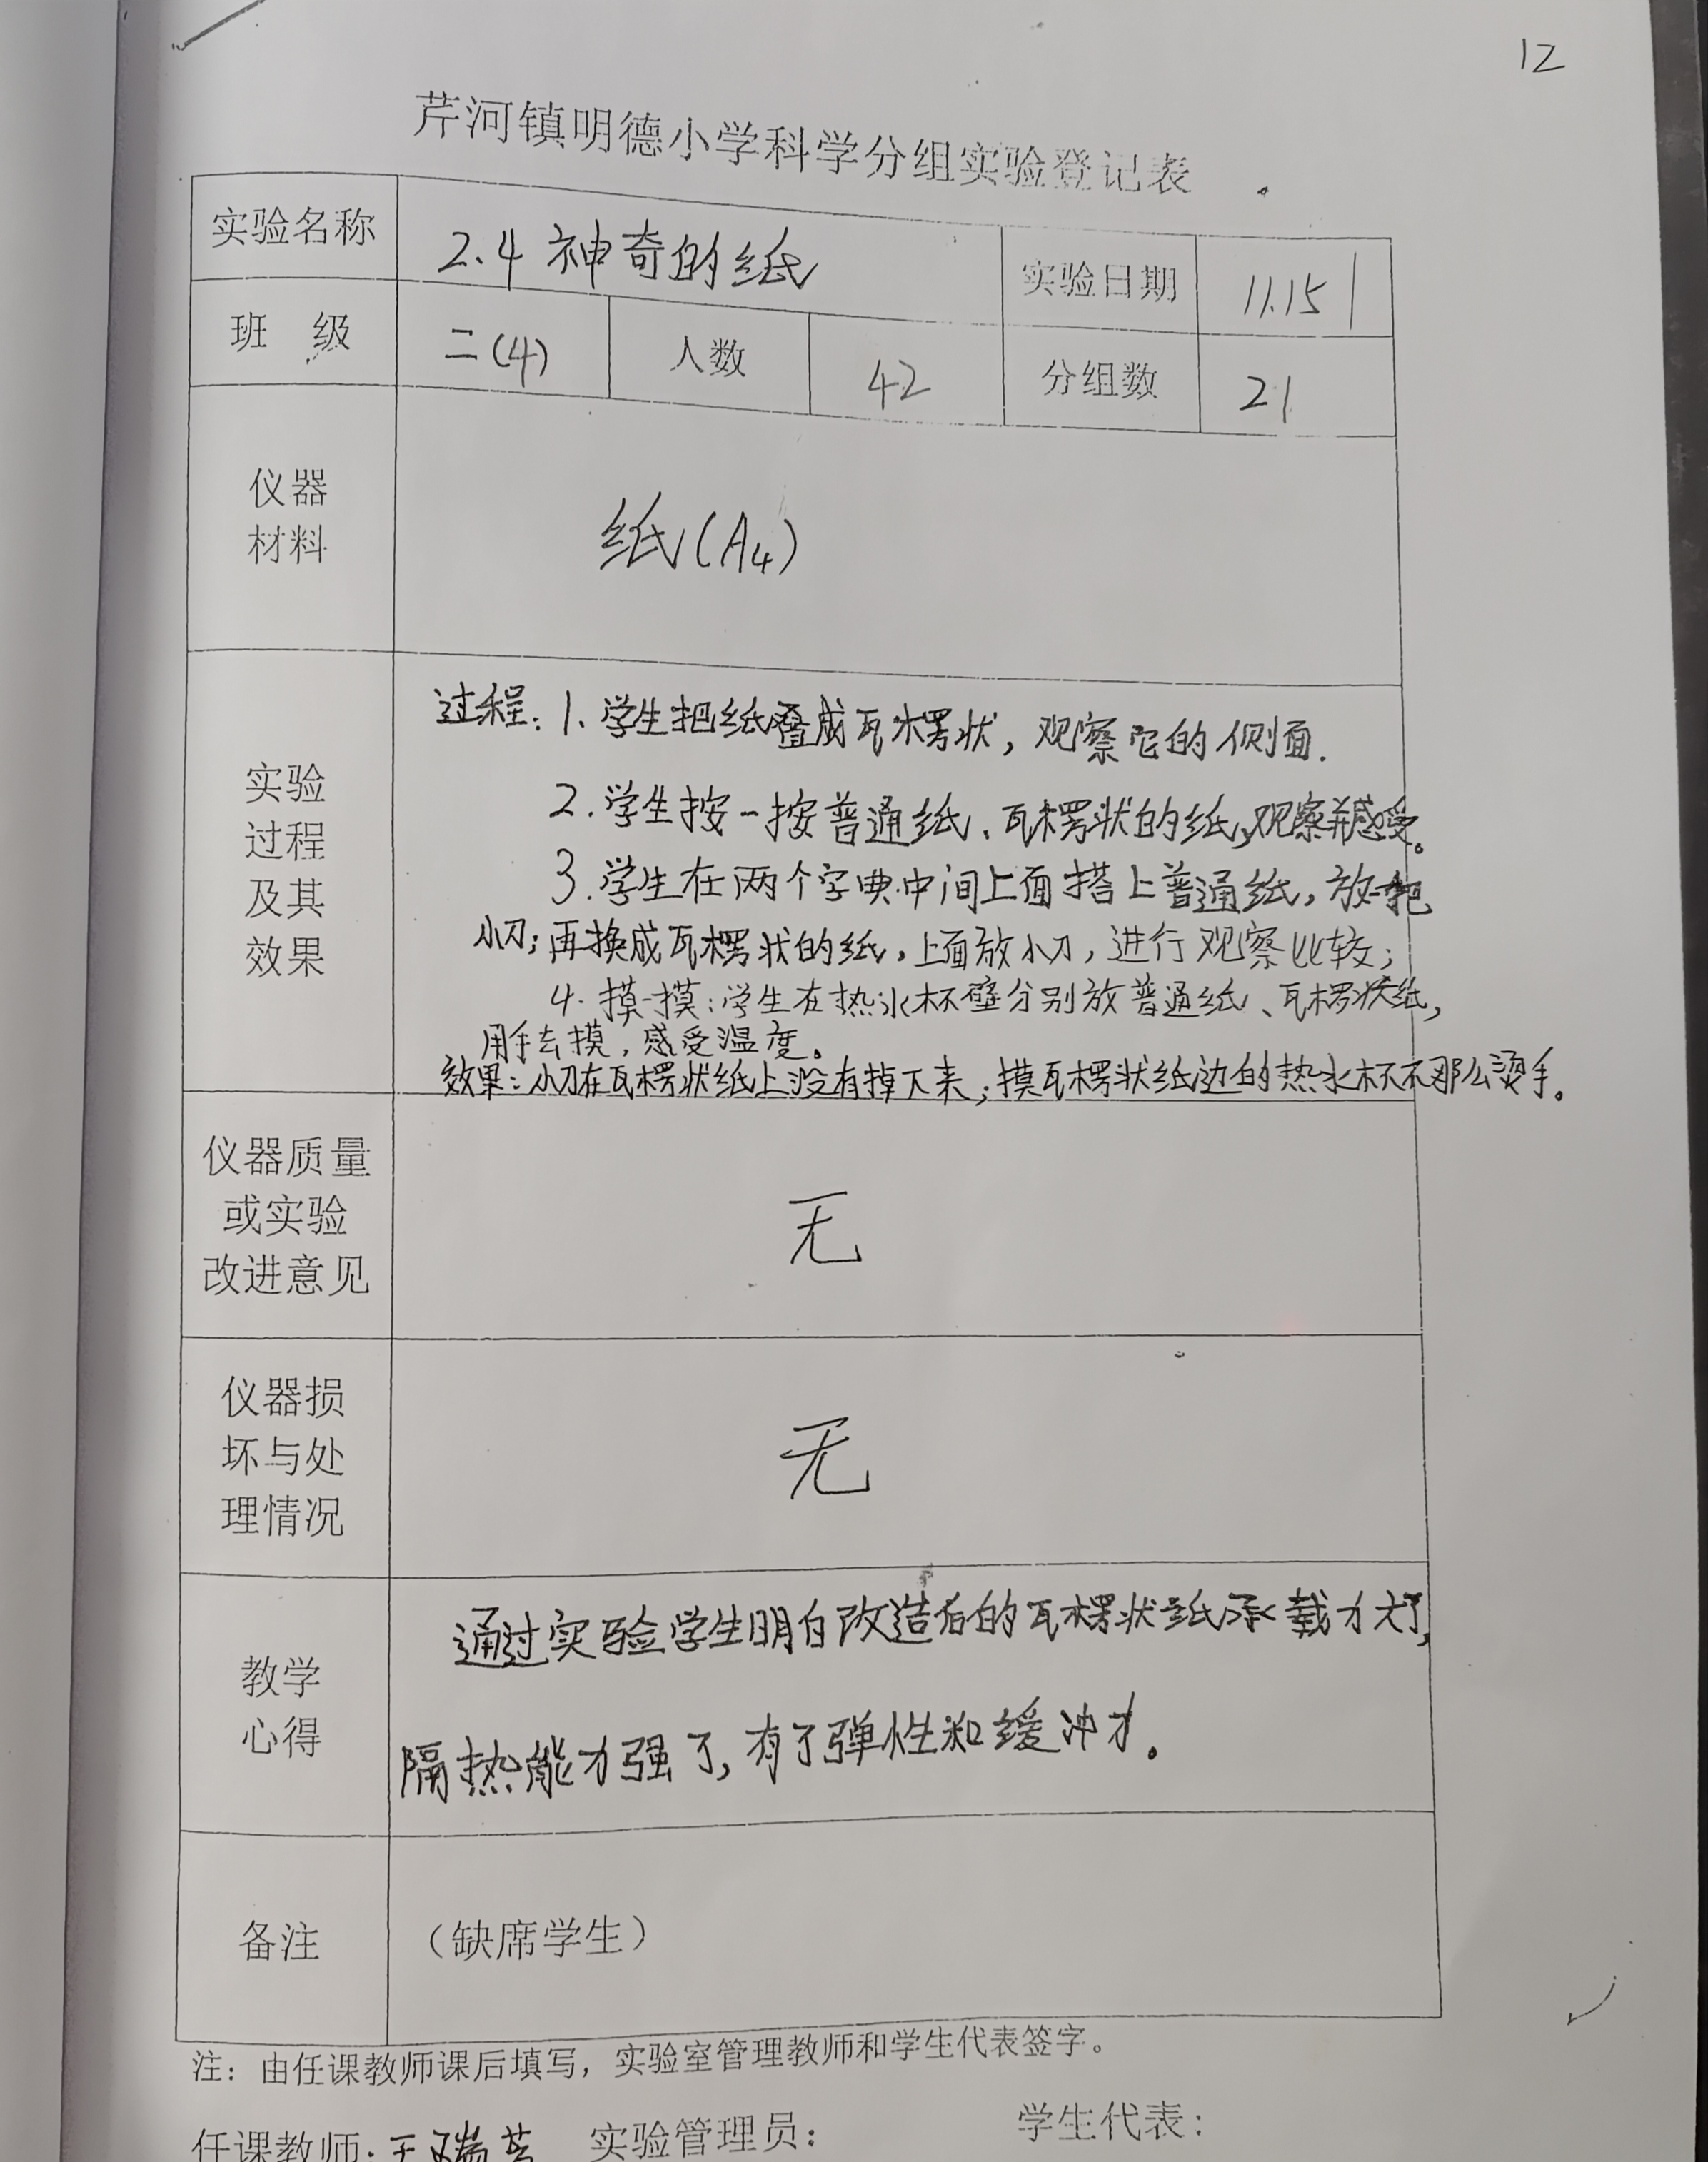 12
芹河镇明德小学科学分组实验登记表
实验名称 2.4 神奇的纸 实验日期 11.15
班 级 二(4) 人数 42 分组数 21
仪器
材料
纸(A4)
实验
过程
及其
效果
过程: 1. 学生把纸叠成瓦楞状, 观察它的侧面.
2. 学生按一按普通纸、瓦楞状的纸,观察并感受。
3. 学生在两个字典中间上面搭上普通纸, 放一把
小刀; 再换成瓦楞状的纸, 上面放小刀, 进行观察比较;
4. 摸一摸: 学生在热水杯壁分别放普通纸、瓦楞状纸,
用手去摸, 感受温度。
效果: 小刀在瓦楞状纸上没有掉下来; 摸瓦楞状纸边的热水杯不那么烫手。
仪器质量
或实验
改进意见
无
仪器损
坏与处
理情况
无
教学
心得
通过实验学生明白改造后的瓦楞状纸承载力大了,
隔热能力强了, 有了弹性和缓冲力。
备注
（缺席学生）
注：由任课教师课后填写，实验室管理教师和学生代表签字。
任课教师: 王瑞芳 实验管理员： 学生代表：